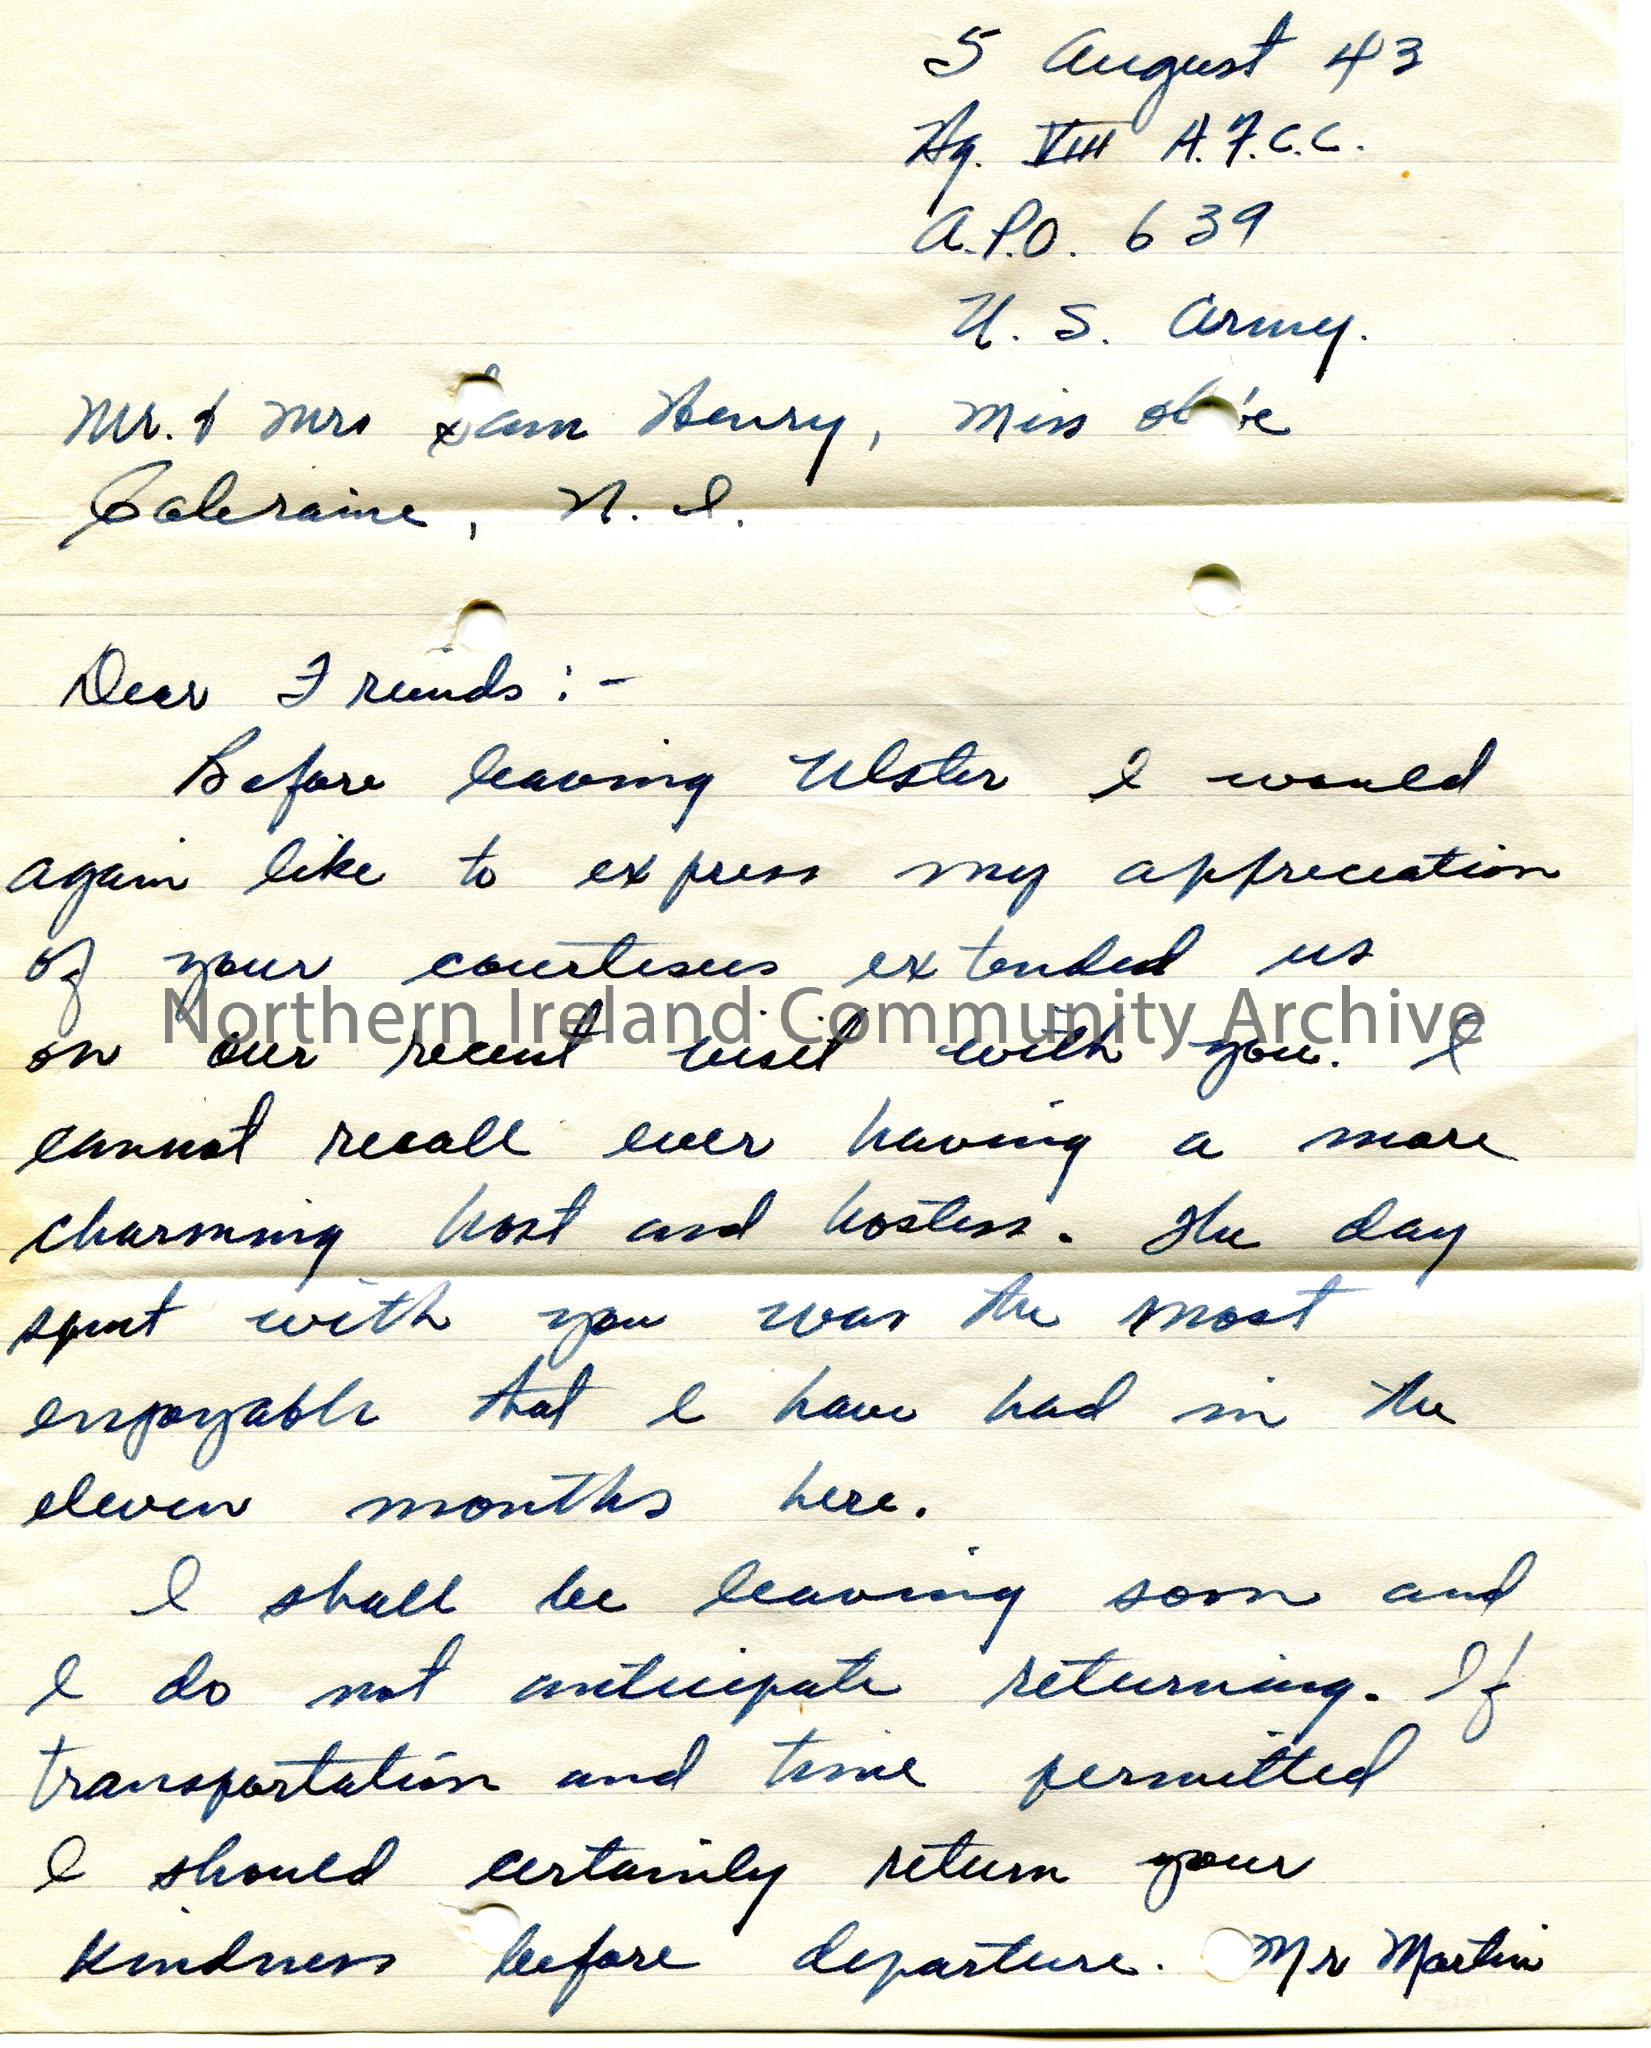 5 August 43
Hq. VIII A.F.C.C.
A.P.O. 639
U. S. Army.
Mr. & Mrs Sam Henry, Miss
Coleraine, N. I.
Dear Freinds :-
Before leaving Ulster I would
again like to express my appreciation
of your courtesies extended us
Northern Ireland Community Archive
on our recent visit with you. I
cannot recall ever having a more
charming host and hostess. The day
spent with you was the most
enjoyable that I have had in the
eleven months here.
I shall be leaving soon and
I do not anticipate returning. If
transportation and time permitted
I should certainly return your
kindness before departure. Mr Martin